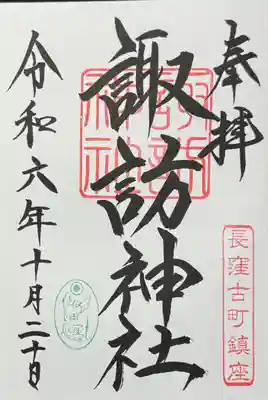 奉拝
長窪古町鎮座
諏訪神社
諏訪
神社
令和六年十月二十日